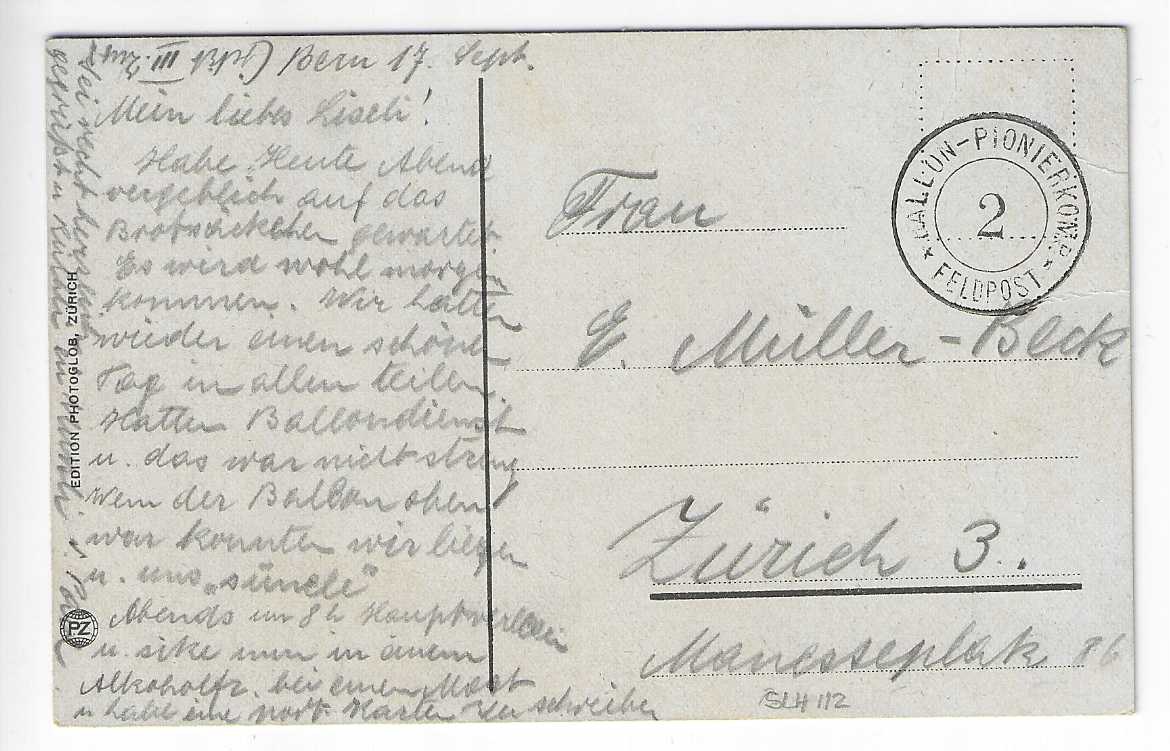 Bern 17. Sept.
Mein liebes Liseli!
Habe Heute Abend
vergeblich auf das
Brotsäckchen gewartet.
Es wird wohl morgen
kommen. Wir hatten
wieder einen schönen
Tag in allen teilen.
Hatten Ballondienst
u. das war nicht streng
Wenn der Ballon oben
war konnten wir liegen
u. uns „sünele"
Abends um 8 h Hauptverlesen
u. sitze nun in einem
Alkoholfr. bei einem Most
u habe eine Karten zu schreiben
Sei recht herzlich
gegrüsst u
EDITION PHOTOGLOB, ZÜRICH
PZ
BALLON-PIONIERKOMP.
2
FELDPOST
Frau
E. Müller-Beck
Zürich 3.
Manesseplatz 86
SLH 112